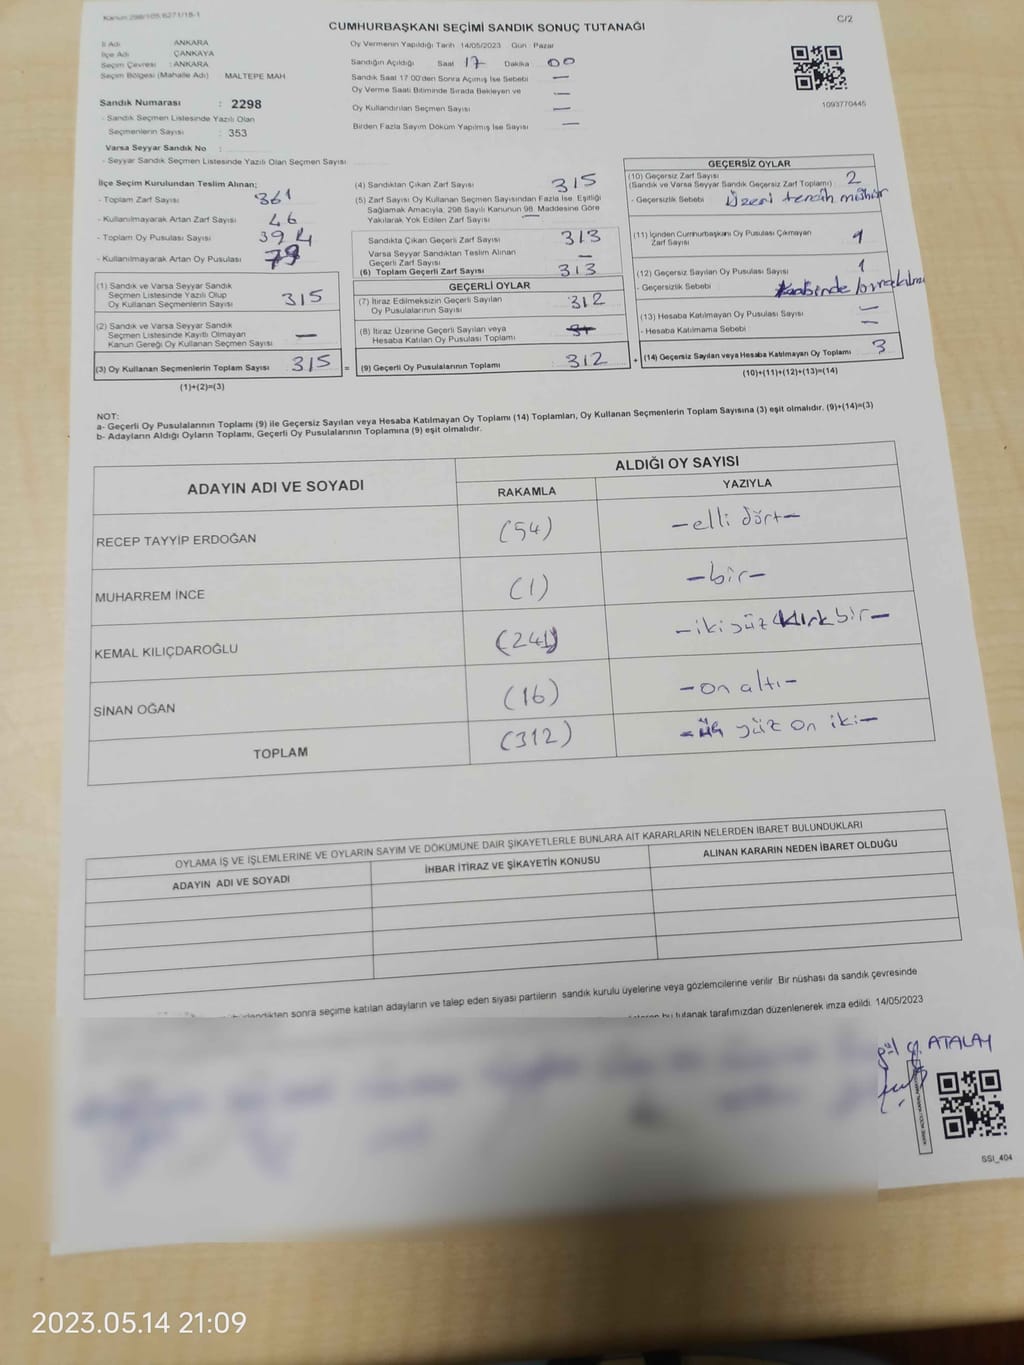 Kanun:298/105,6271/18-1
CUMHURBAŞKANI SEÇİMİ SANDIK SONUÇ TUTANAĞI
C/2
İl Adı ANKARA
İlçe Adı ÇANKAYA
Seçim Çevresi : ANKARA
Seçim Bölgesi (Mahalle Adı) MALTEPE MAH
Sandık Numarası : 2298
- Sandık Seçmen Listesinde Yazılı Olan
Seçmenlerin Sayısı : 353
Varsa Seyyar Sandık No :
- Seyyar Sandık Seçmen Listesinde Yazılı Olan Seçmen Sayısı
Oy Vermenin Yapıldığı Tarih 14/05/2023 Gün : Pazar
Sandığın Açıldığı Saat 17 Dakika 00
Sandık Saat 17:00'den Sonra Açımış İse Sebebi —
Oy Verme Saati Bitiminde Sırada Bekleyen ve
Oy Kullandırılan Seçmen Sayısı —
Birden Fazla Sayım Döküm Yapılmış İse Sayısı —
1093770445
İlçe Seçim Kurulundan Teslim Alınan;
- Toplam Zarf Sayısı 361
- Kullanılmayarak Artan Zarf Sayısı 46
- Toplam Oy Pusulası Sayısı 394
- Kullanılmayarak Artan Oy Pusulası 79
(1) Sandık ve Varsa Seyyar Sandık
Seçmen Listesinde Yazılı Olup
Oy Kullanan Seçmenlerin Sayısı 315
(2) Sandık ve Varsa Seyyar Sandık
Seçmen Listesinde Kayıtlı Olmayan
Kanun Gereği Oy Kullanan Seçmen Sayısı —
(3) Oy Kullanan Seçmenlerin Toplam Sayısı 315 =
(1)+(2)=(3)
(4) Sandıktan Çıkan Zarf Sayısı 315
(5) Zarf Sayısı Oy Kullanan Seçmen Sayısından Fazla İse, Eşitliği
Sağlamak Amacıyla, 298 Sayılı Kanunun 98. Maddesine Göre
Yakılarak Yok Edilen Zarf Sayısı —
Sandıkta Çıkan Geçerli Zarf Sayısı 313
Varsa Seyyar Sandıktan Teslim Alınan
Geçerli Zarf Sayısı —
(6) Toplam Geçerli Zarf Sayısı 313
GEÇERLİ OYLAR
(7) İtiraz Edilmeksizin Geçerli Sayılan
Oy Pusulalarının Sayısı 312
(8) İtiraz Üzerine Geçerli Sayılan veya
Hesaba Katılan Oy Pusulası Toplamı
(9) Geçerli Oy Pusulalarının Toplamı 312 +
GEÇERSİZ OYLAR
(10) Geçersiz Zarf Sayısı
(Sandık ve Varsa Seyyar Sandık Geçersiz Zarf Toplamı) 2
- Geçersizlik Sebebi Üzeri tercih mühür
(11) İçinden Cumhurbaşkanı Oy Pusulası Çıkmayan
Zarf Sayısı
(12) Geçersiz Sayılan Oy Pusulası Sayısı 1
- Geçersizlik Sebebi
(13) Hesaba Katılmayan Oy Pusulası Sayısı —
- Hesaba Katılmama Sebebi —
(14) Geçersiz Sayılan veya Hesaba Katılmayan Oy Toplamı 3
(10)+(11)+(12)+(13)=(14)
NOT:
a- Geçerli Oy Pusulalarının Toplamı (9) ile Geçersiz Sayılan veya Hesaba Katılmayan Oy Toplamı (14) Toplamları, Oy Kullanan Seçmenlerin Toplam Sayısına (3) eşit olmalıdır. (9)+(14)=(3)
b- Adayların Aldığı Oyların Toplamı, Geçerli Oy Pusulalarının Toplamına (9) eşit olmalıdır.
ADAYIN ADI VE SOYADI
ALDIĞI OY SAYISI
RAKAMLA YAZIYLA
RECEP TAYYİP ERDOĞAN (54) -elli dört-
MUHARREM İNCE (1) -bir-
KEMAL KILIÇDAROĞLU (241) -iki yüz kırk bir-
SİNAN OĞAN (16) -on altı-
TOPLAM (312) -üç yüz on iki-
OYLAMA İŞ VE İŞLEMLERİNE VE OYLARIN SAYIM VE DÖKÜMÜNE DAİR ŞİKAYETLERLE BUNLARA AİT KARARLARIN NELERDEN İBARET BULUNDUKLARI
ADAYIN ADI VE SOYADI İHBAR İTİRAZ VE ŞİKAYETİN KONUSU ALINAN KARARIN NEDEN İBARET OLDUĞU
sonra seçime katılan adayların ve talep eden siyasi partilerin sandık kurulu üyelerine veya gözlemcilerine verilir Bir nüshası da sandık çevresinde
bu tutanak tarafımızdan düzenlenerek imza edildi. 14/05/2023
ATALAY
SSI_404
2023.05.14 21:09